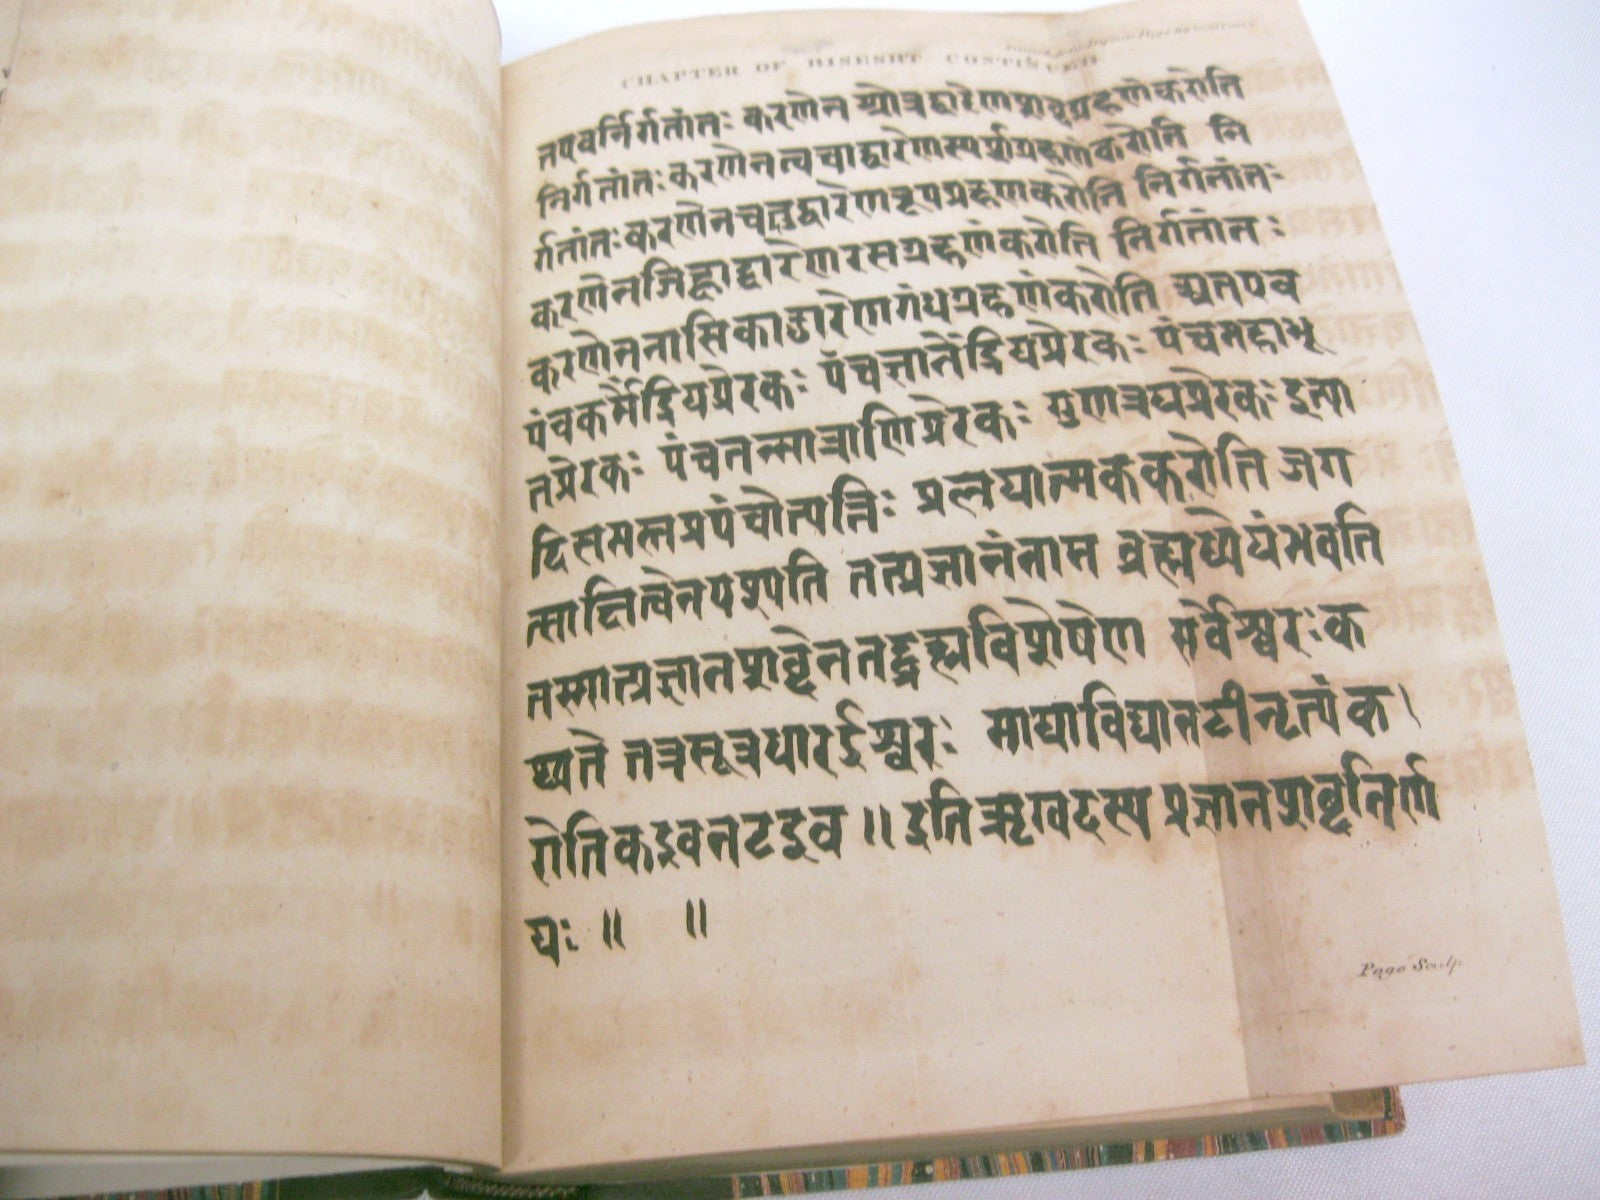 CHAPTER OF BISESHE CONTINUED
तपवर्निर्गतांतः करणेन श्रोत्रद्वारेणशब्दग्रहणंकरोति
निर्गतांतः करणेनत्वचाद्वारेणस्पर्शग्रहणंकरोति नि
र्गतांतः करणेनचक्षुद्वारेणरूपग्रहणंकरोति निर्गतांतः
करणेनजिह्वाद्वारेणरसग्रहणंकरोति निर्गतांतः
करणेननासिकाद्वारेणगंधग्रहणंकरोति अतएव
पंचकर्मेंद्रियप्रेरकः पंचज्ञानेंद्रियप्रेरकः पंचमहाभू
तप्रेरकः पंचतन्मात्राणिप्रेरकः गुणत्रयप्रेरकः इत्या
दिसमस्तप्रपंचोत्पत्तिः प्रलयात्मककरोति जग
त्साक्षित्वेनपश्यति तत्प्रज्ञानंनाम ब्रह्मध्येयंभवति
तस्मात्प्रज्ञानशब्देनतद्ब्रह्मविशेषेण सर्वेश्वरः क
थ्यते तत्रसूत्रधारईश्वरः मायाविद्यानटीनृत्यं क।
रोतिकइवनटइव ॥ इतिऋग्वेदस्य प्रज्ञानशब्दनिर्ण
यः ॥ ॥
Page Sculp